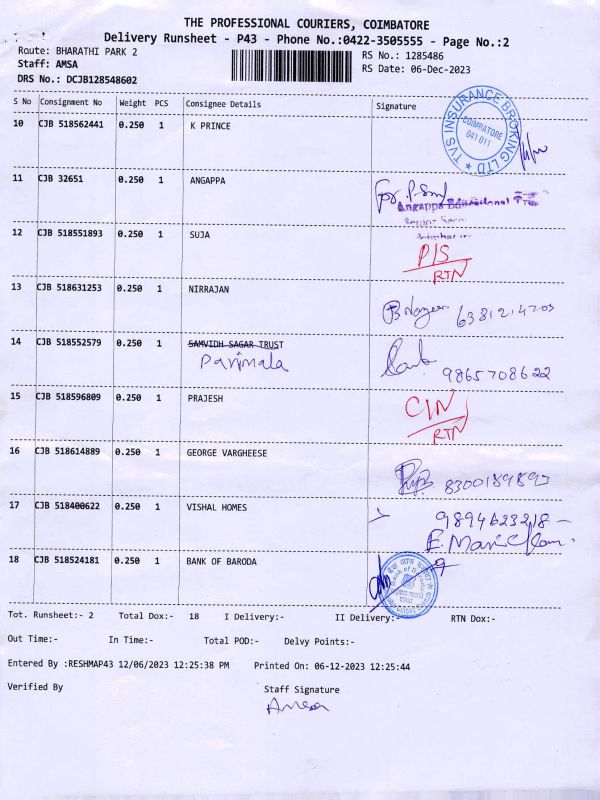 THE PROFESSIONAL COURIERS, COIMBATORE
Delivery Runsheet - P43 - Phone No.:0422-3505555 - Page No.:2
Route: BHARATHI PARK 2 RS No.: 1285486
Staff: AMSA RS Date: 06-Dec-2023
DRS No.: DCJB128548602
S No Consignment No Weight PCS Consignee Details Signature
10 CJB 518562441 0.250 1 K PRINCE
TVS INSURANCE BROKING LTD
COIMBATORE
641 011
11 CJB 32651 0.250 1 ANGAPPA
For
Angappa Educational
12 CJB 518551893 0.250 1 SUJA
P/S
RTN
13 CJB 518631253 0.250 1 NIRRAJAN
14 CJB 518552579 0.250 1 SAMVIDH SAGAR TRUST
Parimala
9865708622
15 CJB 518596809 0.250 1 PRAJESH
C/N
RTN
16 CJB 518614889 0.250 1 GEORGE VARGHEESE
17 CJB 518400622 0.250 1 VISHAL HOMES
9894623218
18 CJB 518524181 0.250 1 BANK OF BARODA
Bank of Baroda
Tot. Runsheet:- 2 Total Dox:- 18 I Delivery:- II Delivery:- RTN Dox:-
Out Time:- In Time:- Total POD:- Delvy Points:-
Entered By :RESHMAP43 12/06/2023 12:25:38 PM Printed On: 06-12-2023 12:25:44
Verified By Staff Signature
Amsa